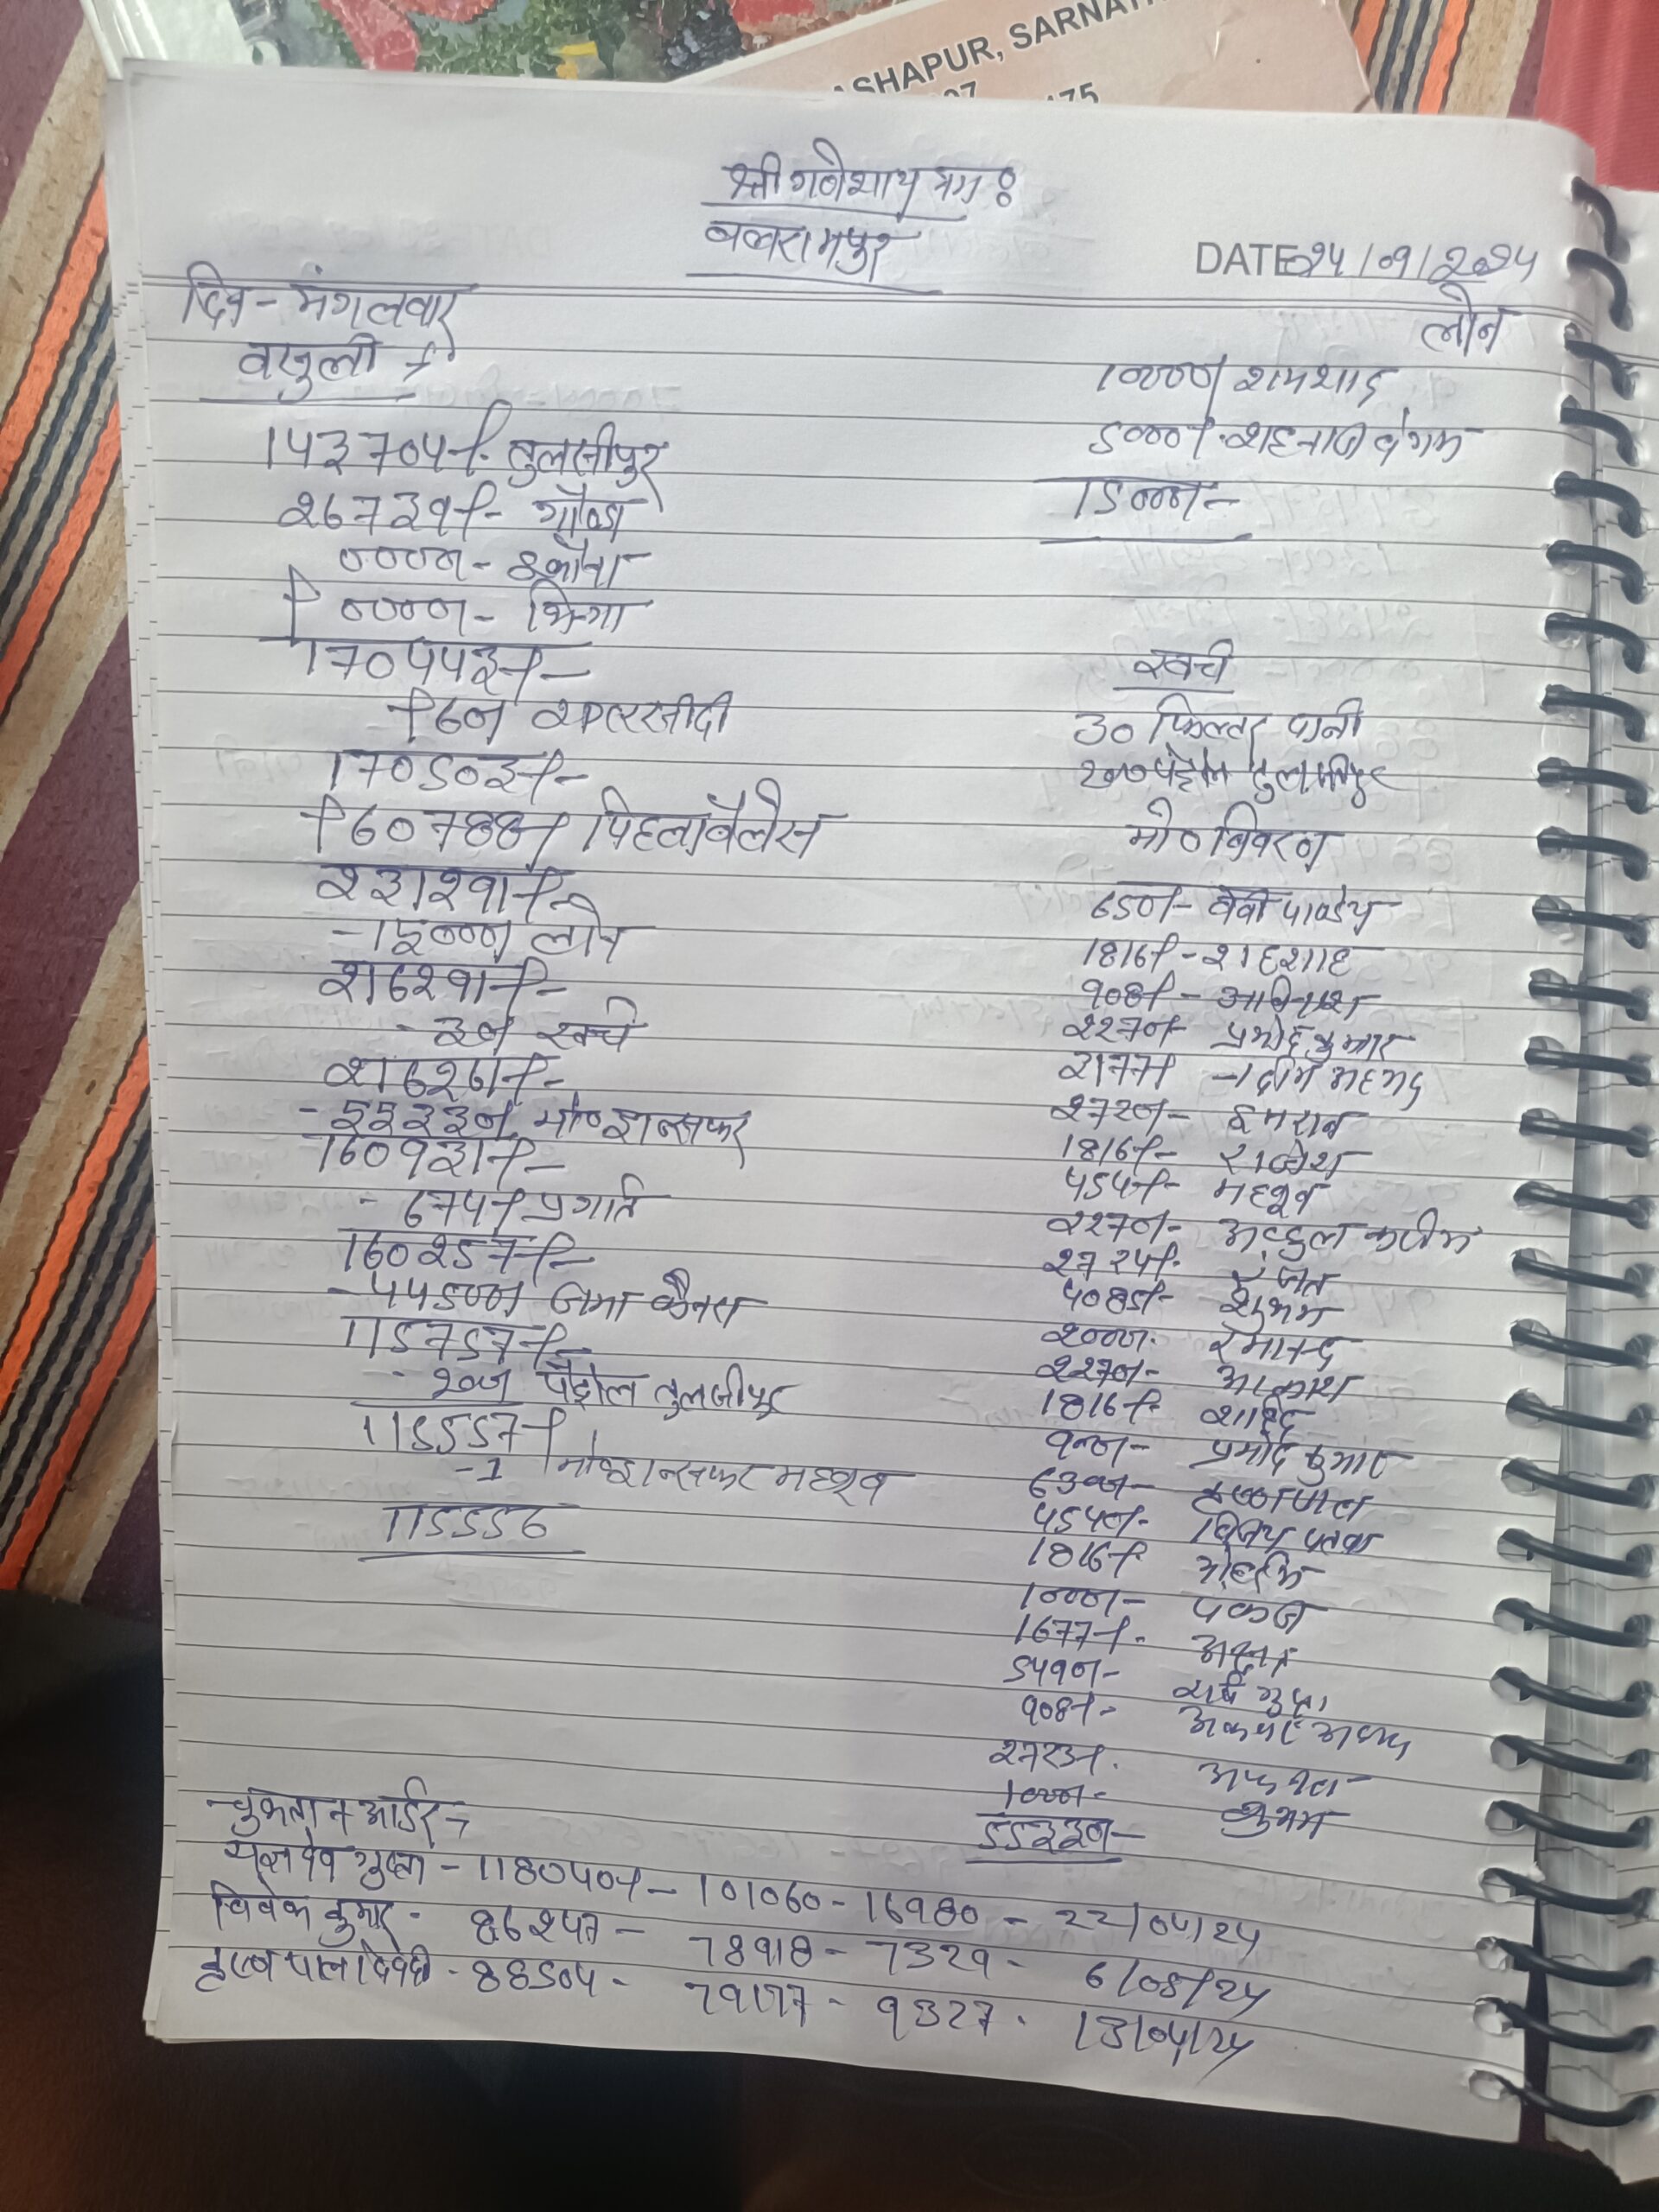 ASHAPUR, SARNATH
श्री गणेशाय नमः
बलरामपुर
DATE 24/09/2024
दिन - मंगलवार
वसूली →
143704/- तुलसीपुर
26739/- गोण्डा
0000/- इकौना
+ 0000/- भिनगा
170443/-
+ 60/-
170503/-
+ 60788/- पिछला बैलेंस
231291/-
- 15000/- लोन
216291/-
- 30/- खर्च
216261/-
- 55330/- मो० ट्रान्सफर
160931/-
- 674/- प्रगति
160257/-
- 44500/- जमा कैनरा
115757/-
- 200/- पेट्रोल तुलसीपुर
115557/-
-1 मो० ट्रान्सफर महबूब
115556
लोन
10000/- शमशाद
5000/- शहनाज बेगम
15000/-
खर्च
30 फिल्टर पानी
200 पेट्रोल तुलसीपुर
मो० विवरण
650/- बेबी पाण्डेय
1816/-
908/- अविनाश
2270/- प्रमोद कुमार
2177/-
2720/- इमरान
1816/- राकेश
454/- महबूब
2270/- अब्दुल करीम
2724/- रंजीत
4085/- शुभम
2000/- रमानन्द
2270/- आकाश
1816/- शाहिद
900/- प्रमोद कुमार
6300/- कृष्णपाल
4540/- विजय
1816/-
1000/- पंकज
1677/-
5490/- गुप्ता
908/-
2723/-
1000/- शुभम
55330/-
चुकतान आर्डर →
गुप्ता - 118040/- - 101060 - 16980 - 22/04/24
विवेक कुमार - 86247 - 78918 - 7329 - 6/08/24
कृष्ण पाल द्विवेदी - 88504 - 79177 - 9327 - 13/04/24